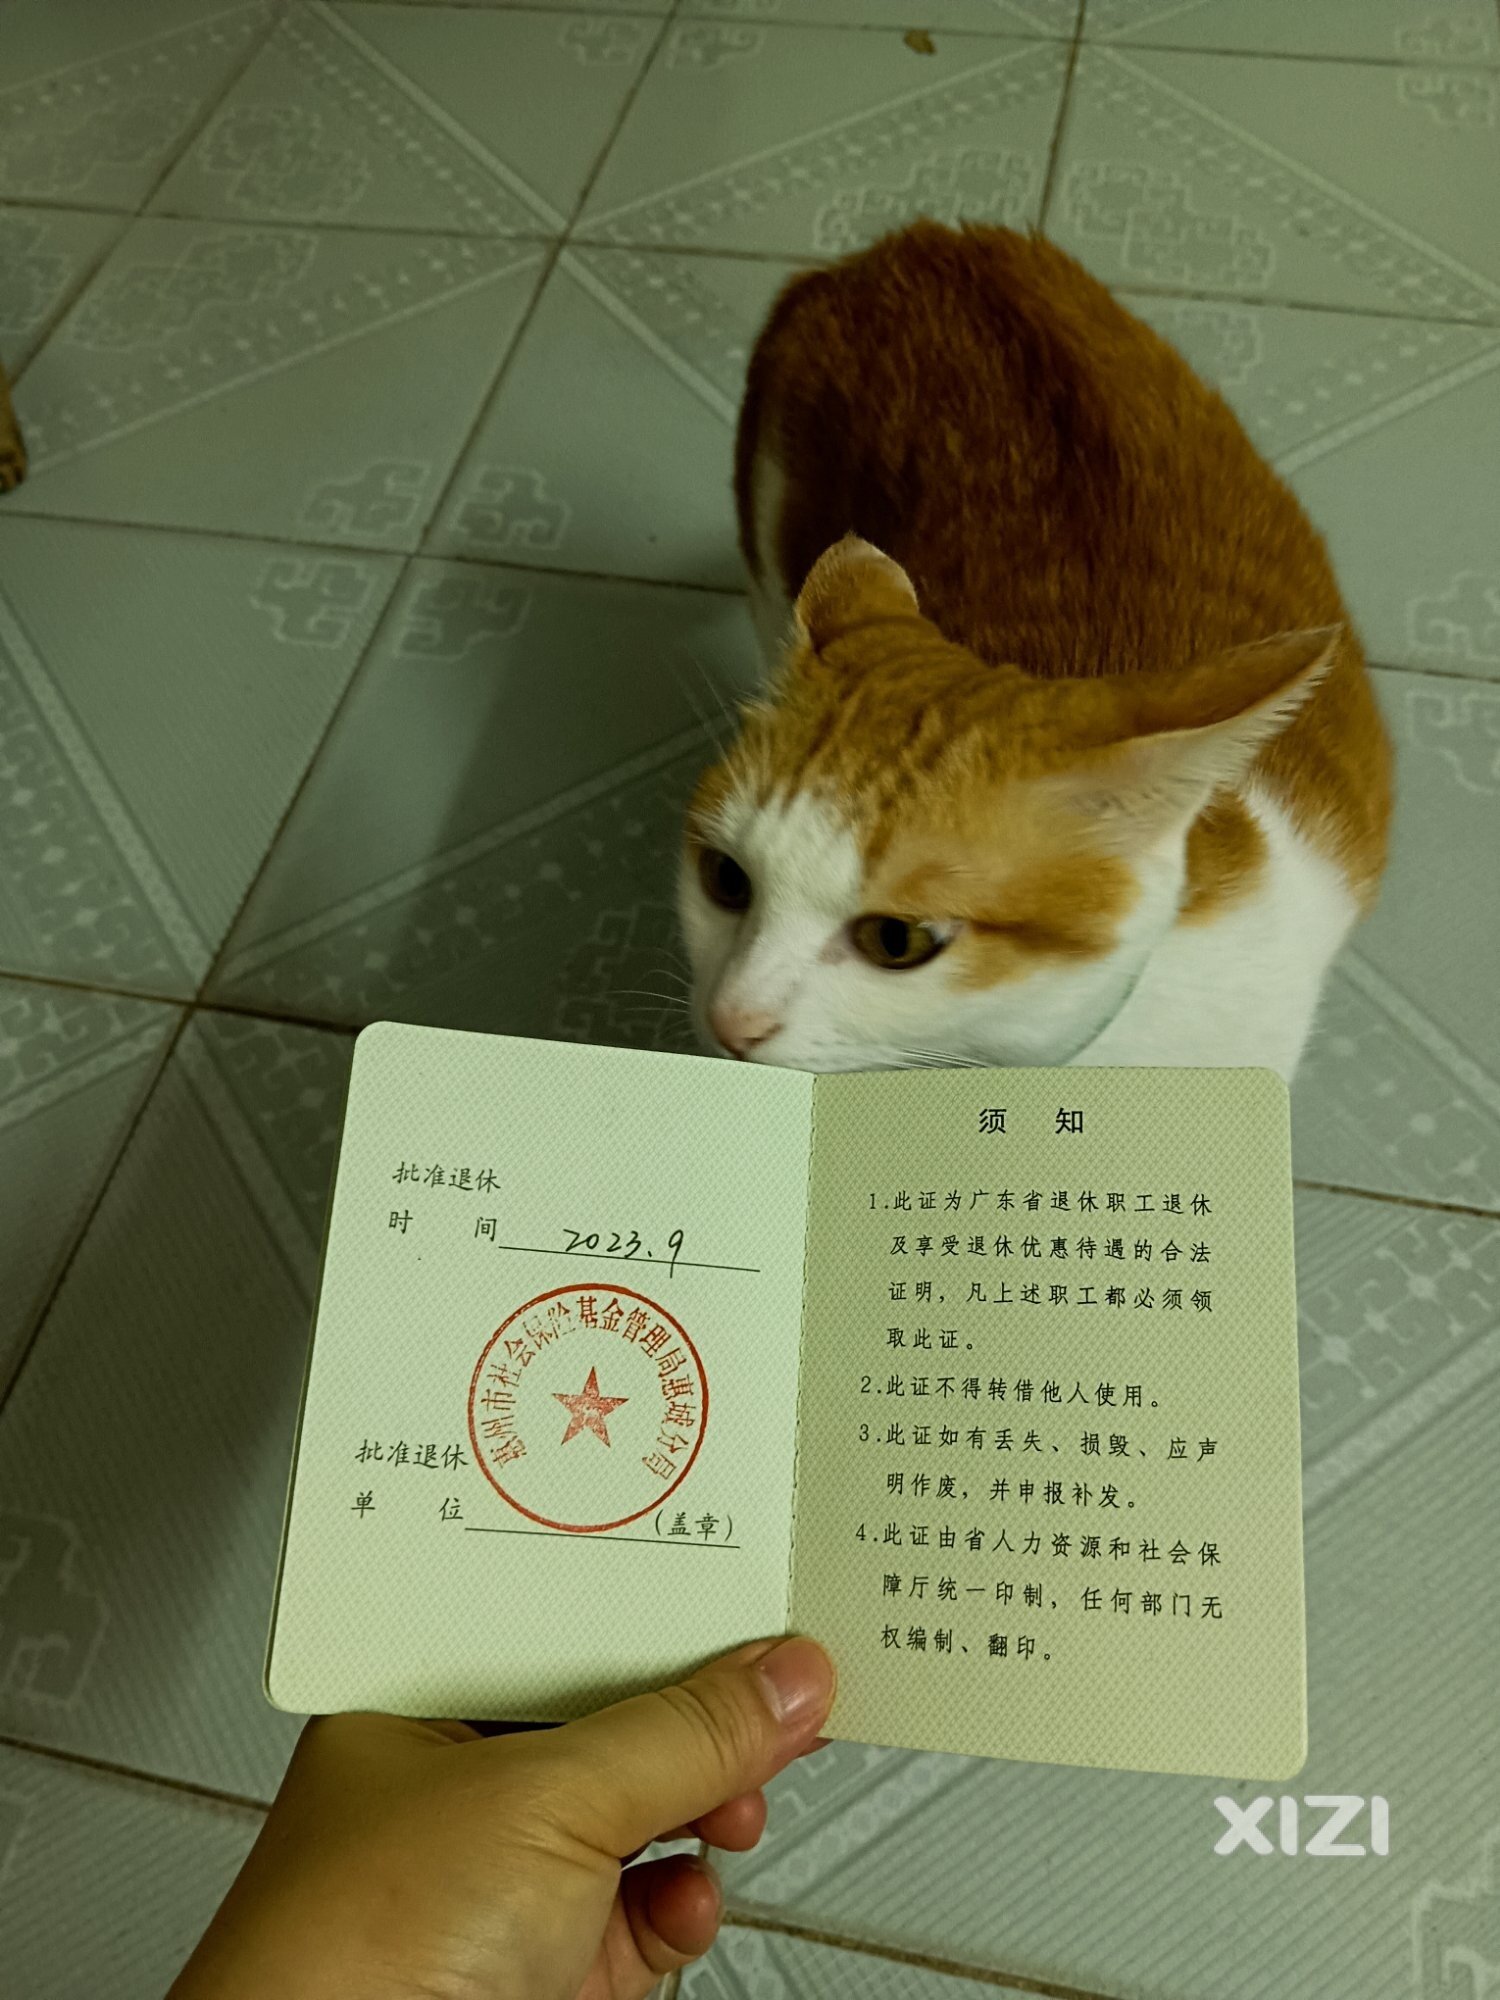 批准退休
时 间 2023.9
惠州市社会保险基金管理局惠城分局
批准退休
单 位 (盖章)
须 知
1.此证为广东省退休职工退休
及享受退休优惠待遇的合法
证明，凡上述职工都必须领
取此证。
2.此证不得转借他人使用。
3.此证如有丢失、损毁、应声
明作废，并申报补发。
4.此证由省人力资源和社会保
障厅统一印制，任何部门无
权编制、翻印。
XIZI